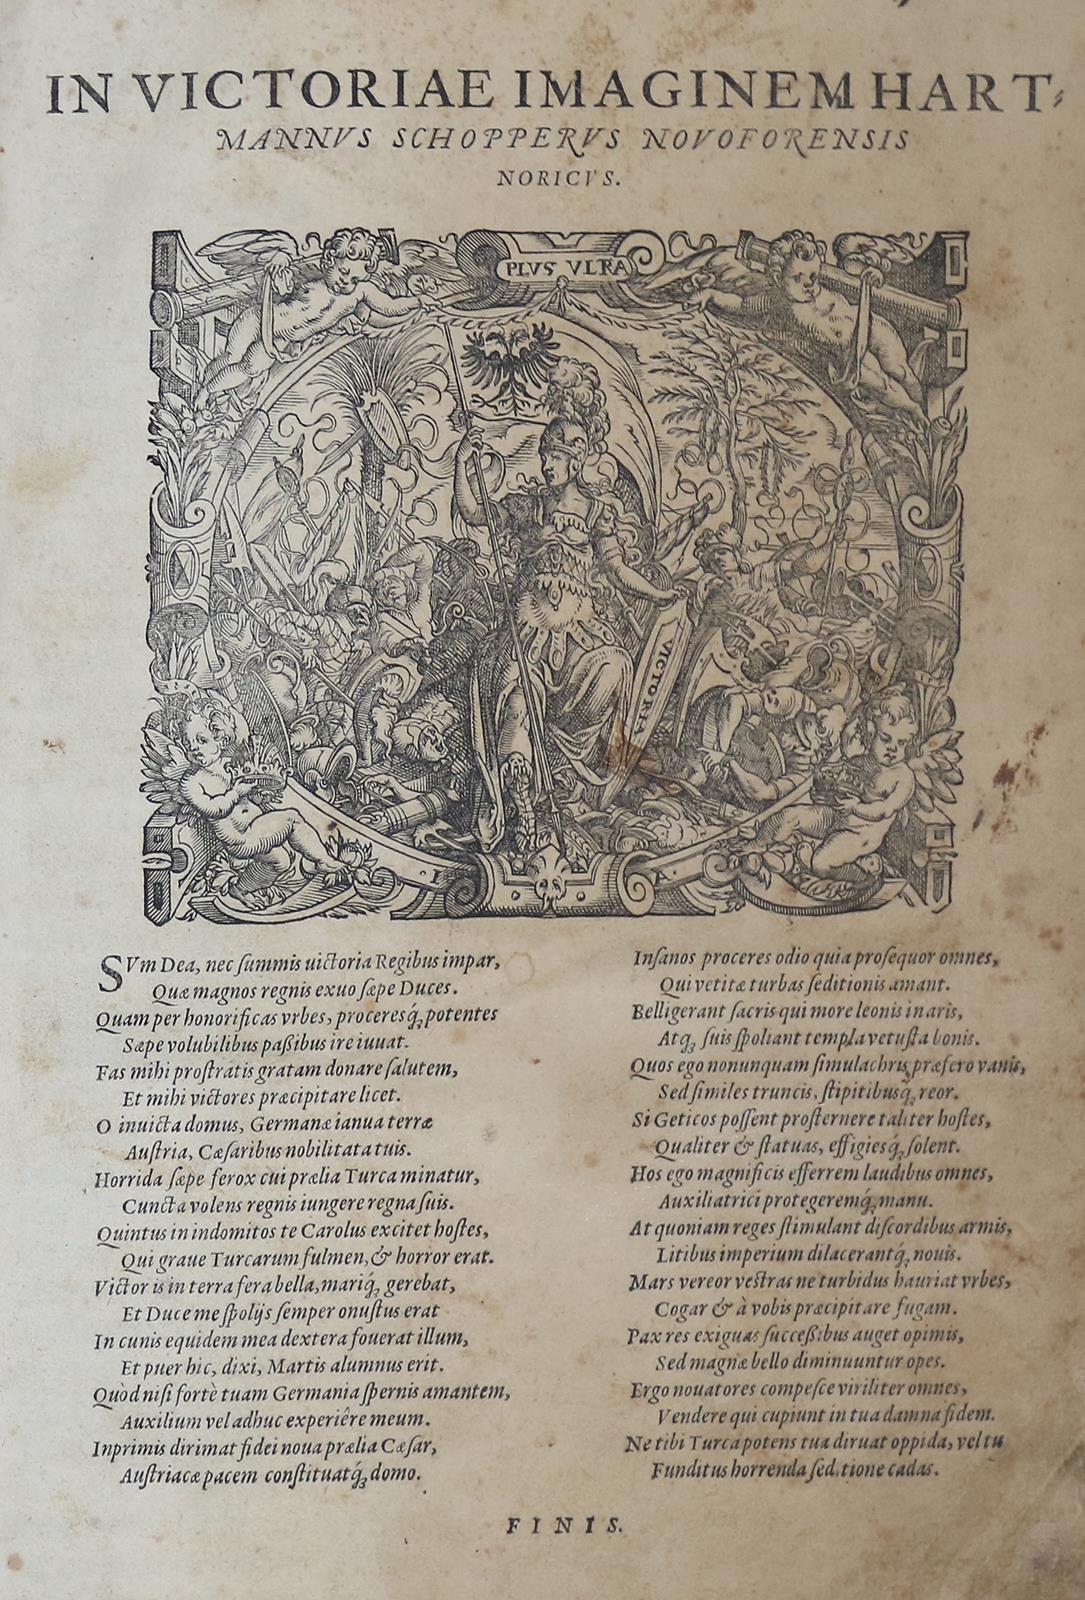 IN VICTORIAE IMAGINEM HART-
MANNVS SCHOPPERVS NOVOFORENSIS
NORICVS.
PLVS VLTRA
VICTORIA
I A
SVm Dea, nec ſummis uictoria Regibus impar,
Quæ magnos regnis exuo ſæpe Duces.
Quam per honorificas vrbes, proceresq́; potentes
Sæpe volubilibus paßibus ire iuuat.
Fas mihi proſtratis gratam donare ſalutem,
Et mihi victores præcipitare licet.
O inuicta domus, Germanæ ianua terræ
Auſtria, Cæſaribus nobilitata tuis.
Horrida ſæpe ferox cui prælia Turca minatur,
Cuncta volens regnis iungere regna ſuis.
Quintus in indomitos te Carolus excitet hoſtes,
Qui graue Turcarum fulmen, & horror erat.
Victor is in terra fera bella, mariq́; gerebat,
Et Duce me ſpolijs ſemper onuſtus erat
In cunis equidem mea dextera fouerat illum,
Et puer hic, dixi, Martis alumnus erit.
Quòd niſi fortè tuam Germania ſpernis amantem,
Auxilium vel adhuc experiêre meum.
Inprimis dirimat fidei noua prælia Cæſar,
Auſtriacæ pacem conſtituatq́; domo.
Inſanos proceres odio quia proſequor omnes,
Qui vetitæ turbas ſeditionis amant.
Belligerant ſacris qui more leonis in aris,
Atq; ſuis ſpoliant templa vetuſta bonis.
Quos ego nonunquam ſimulachris præfero vanis,
Sed ſimiles truncis, ſtipitibusq́; reor.
Si Geticos poſſent proſternere taliter hoſtes,
Qualiter & ſtatuas, effigiesq́; ſolent.
Hos ego magnificis efferrem laudibus omnes,
Auxiliatrici protegeremq́; manu.
At quoniam reges ſtimulant diſcordibus armis,
Litibus imperium dilacerantq́; nouis.
Mars vereor veſtras ne turbidus hauriat vrbes,
Cogar & à vobis præcipitare fugam.
Pax res exiguas ſucceßibus auget opimis,
Sed magnæ bello diminuuntur opes.
Ergo nouatores compeſce viriliter omnes,
Vendere qui cupiunt in tua damna fidem.
Ne tibi Turca potens tua diruat oppida, vel tu
Funditus horrenda ſeditione cadas.
FINIS.